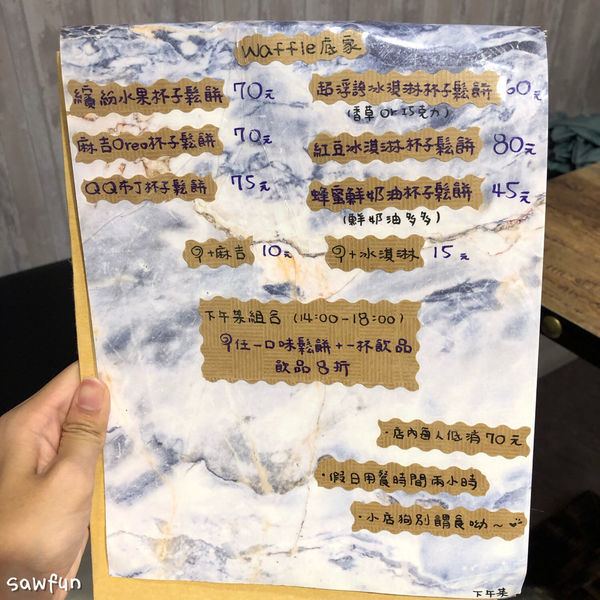 Waffle底家
繽紛水果杯子鬆餅 70元
麻吉Oreo杯子鬆餅 70元
QQ布丁杯子鬆餅 75元
超浮誇冰淇淋杯子鬆餅 60元
(香草or巧克力)
紅豆冰淇淋杯子鬆餅 80元
蜂蜜鮮奶油杯子鬆餅 45元
(鮮奶油多多)
+麻吉 10元
+冰淇淋 15元
下午茶組合 (14:00-18:00)
任一口味鬆餅+一杯飲品
飲品8折
·店內每人低消70元
·假日用餐時間兩小時
·小店狗別餵食呦~
下午茶
sawfun